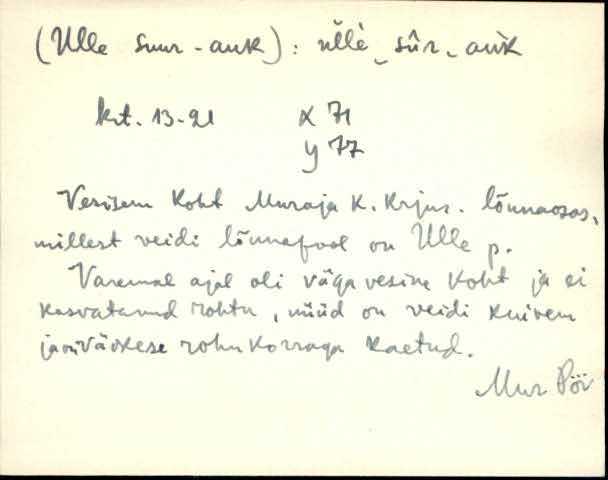 (Ulle suur-auk): ùllè‿sûr‿aùk
krt. 13-21 x 71
y 77
Vesisem koht Muraja k. krjus. lõunaosas,
millest veidi lõunapool on Ulle p.
Varemal ajal oli väga vesine koht ja ei
kasvatanud rohtu, nüüd on veidi kuivem
ja on väikese rohukorraga kaetud.
Mur Pöi